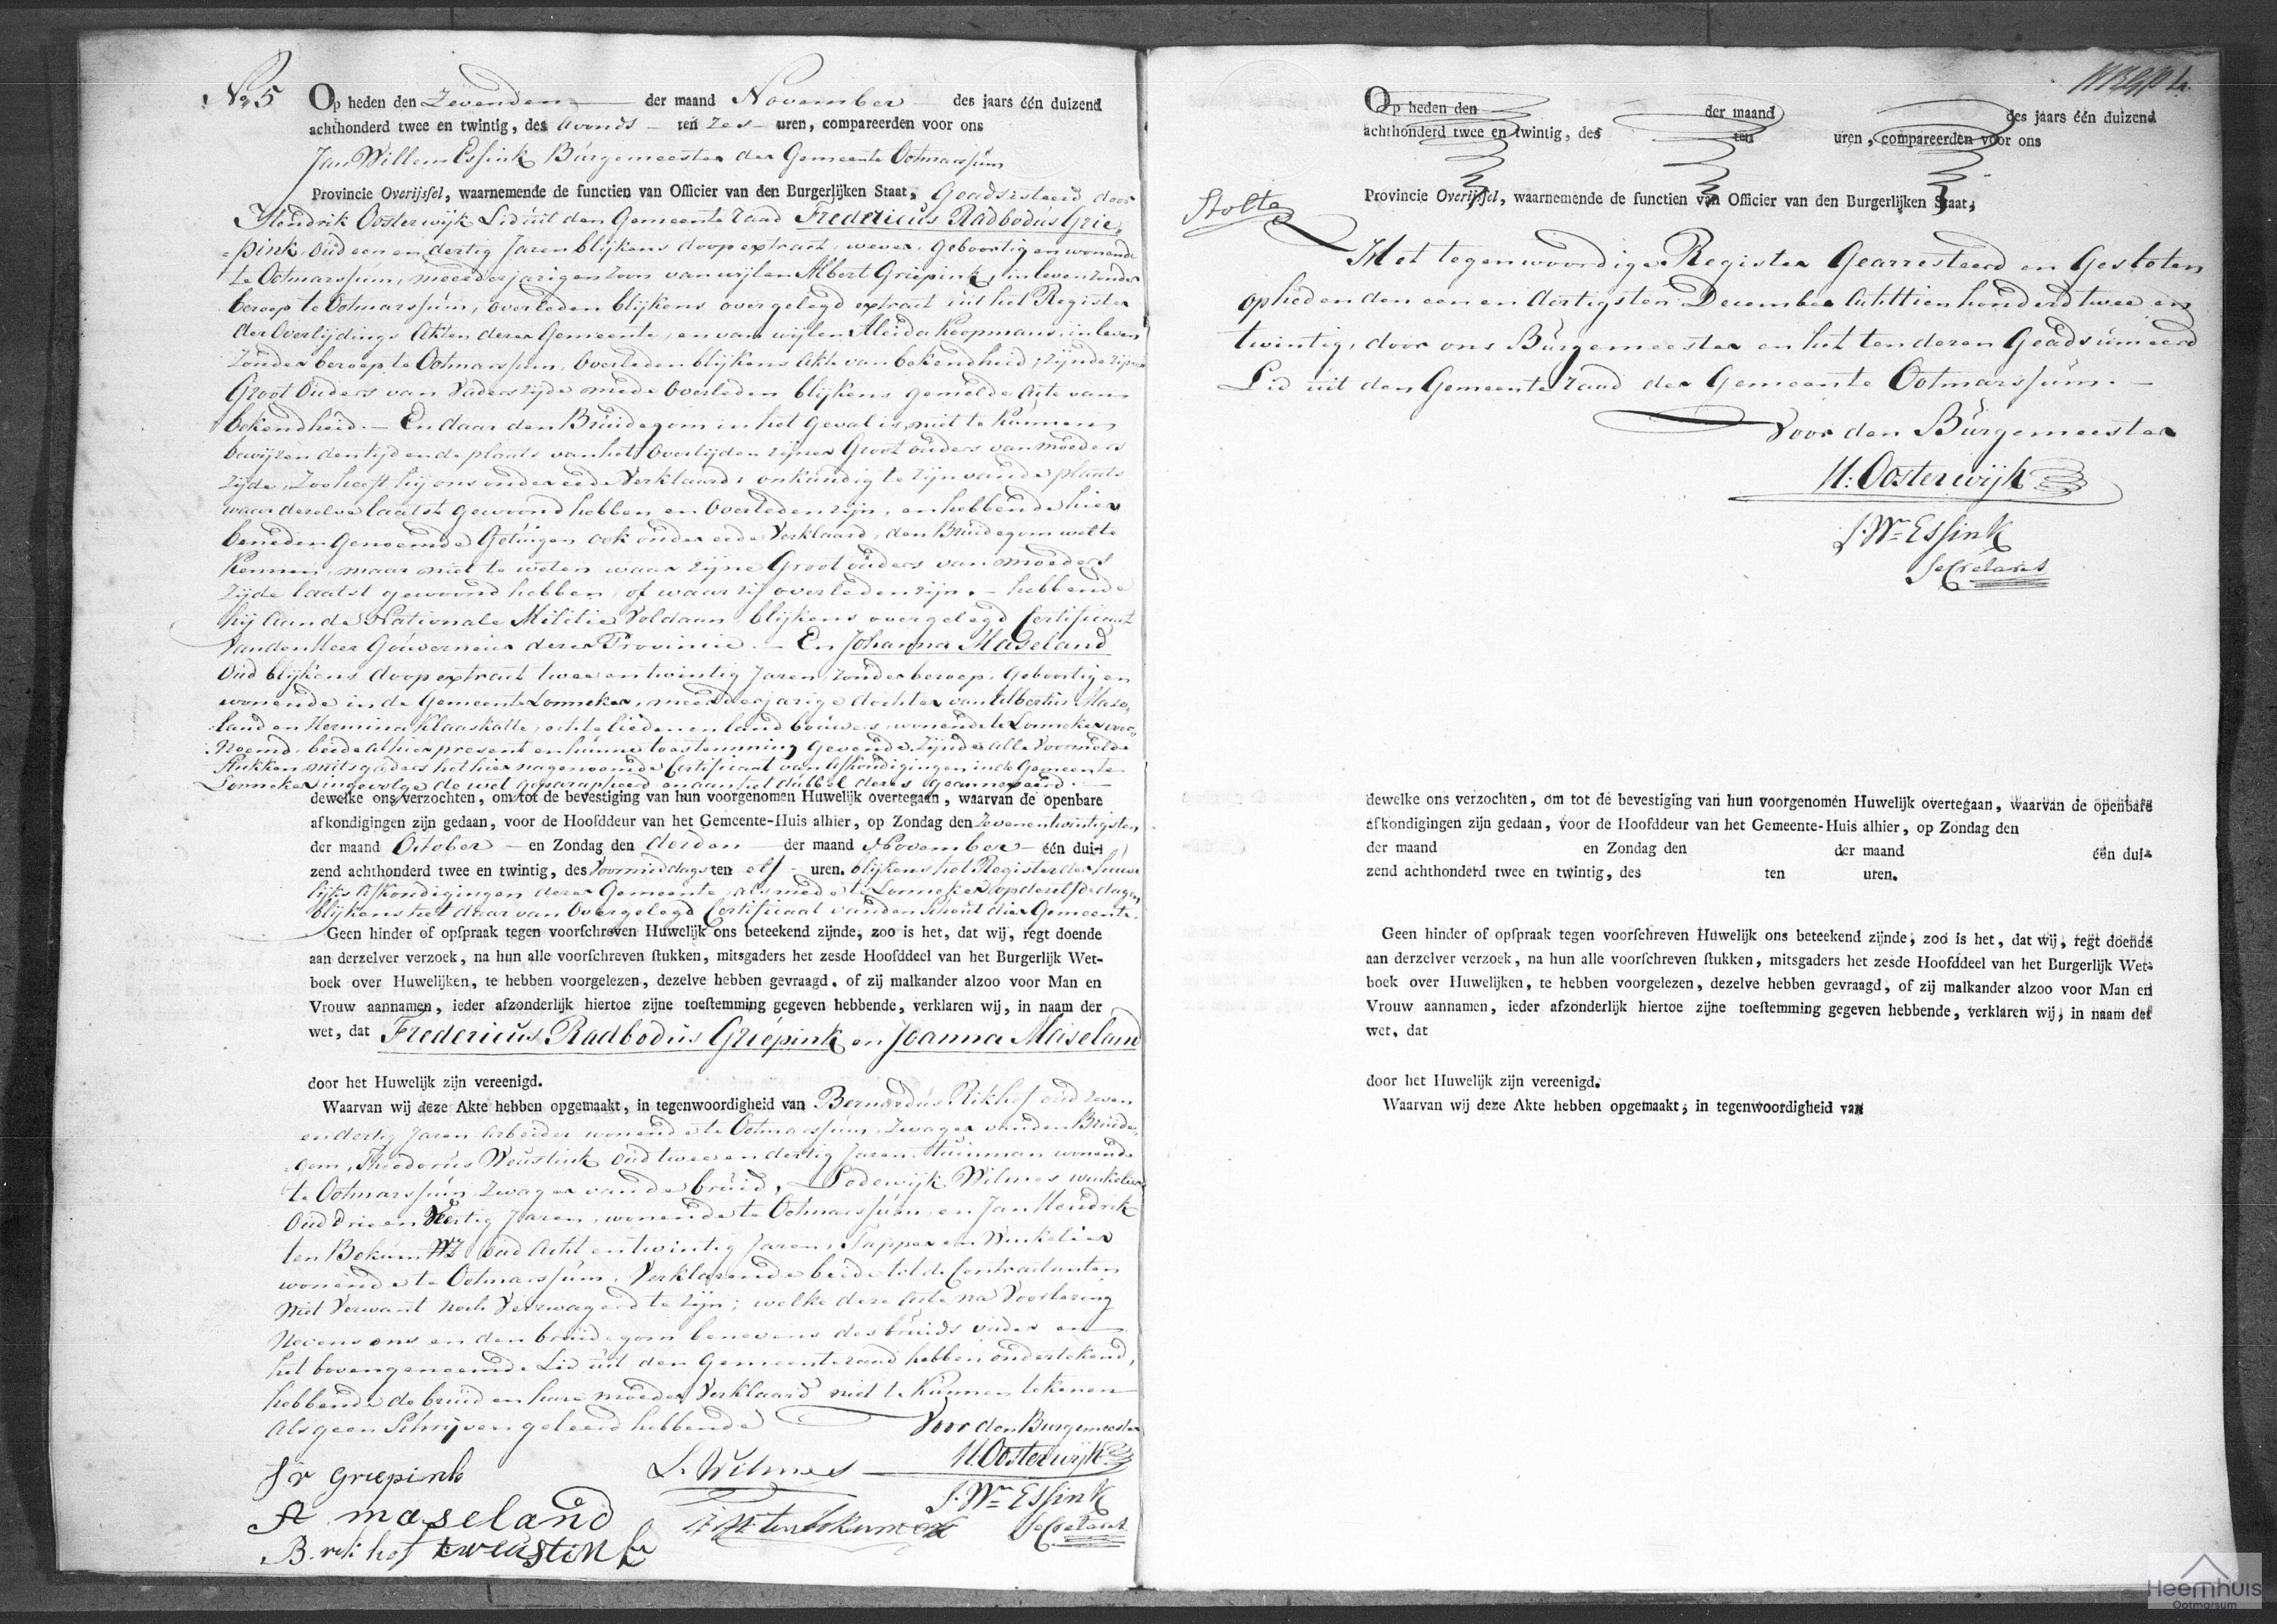 No 5 Op heden den Zevenden der maand November des jaars één duizend
achthonderd twee en twintig, des avonds ten zes uren, compareerden voor ons
Jan Willem Essink Burgemeester der Gemeente Ootmarssum
Provincie Overijssel, waarnemende de functien van Officier van den Burgerlijken Staat, Geadsisteerd door
Hendrik Oosterwijk Lid uit den Gemeente raad Fredericus Radbodus Grie-
pink, oud een en dertig Jaren blijkens doop extract, wever, geboortig en wonende
te Ootmarssum, meerderjarigen zoon van wijlen Albert Griepink, in leven zonder
beroep te Ootmarssum, overleden blijkens overgelegd extract uit het Register
der Overlijdings Akten dezer Gemeente, en van wijlen Aleida Koopmans, in leven
zonder beroep te Ootmarssum, overleden blijkens akte van bekendheid, zijnde zijne
Groot Ouders van Vaderszijde mede Overleden blijkens gemelde acte van
bekendheid. - En daar den Bruidegom in het geval is, niet te kunnen
bewijzen den tijd en de plaats van het Overlijden zijner Groot ouders van moeders
zijde, Zoo heeft hij ons onder eede Verklaard: onkundig te zijn van de plaats
waar dezelve laatst gewoond hebben en Overleden zijn, en hebbende hier
beneden Genoemde Getuigen ook onder eede Verklaard, den Bruidegom wel te
kennen, maar niet te weten waar zijne Groot ouders van moeders
zijde laatst gewoond hebben, of waar zij overleden zijn. - hebbende
hij aan de Nationale Militie Voldaan blijkens overgelegd Certificaat
van den Heer Gouverneur dezer Provincie. - En Johanna Maseland
Oud blijkens doop extract twee en twintig Jaren, zonder beroep, Geboortig en
wonende in de Gemeente Lonneker, meerderjarige dochter van Albertus Mase-
land en Hermina Klaaskatte, echtelieden en land bouwers, wonende te Lonneker voor-
Noemd, beide alhier present en hunne toestemming gevende. Zijnde alle Voormelde
Stukken, mitsgaders het hier nagenoemde Certificaat van Afkondigingen in de Gemeente
Lonneker ingevolge de wet geparapheerd en aan het dubbel dezes geannexeerd.
dewelke ons verzochten, om tot de bevestiging van hun voorgenomen Huwelijk overtegaan, waarvan de openbare
afkondigingen zijn gedaan, voor de Hoofddeur van het Gemeente-Huis alhier, op Zondag den Zevenentwintigsten
der maand October en Zondag den derden der maand November één dui-
zend achthonderd twee en twintig, des Voormiddags ten elf uren. blijkens het Register der huwe-
lijks Afkondigingen dezer Gemeente, als mede te Lonneker op dezelfde dagen
blijkens het daar van Overgelegd Certificaat van den Schout dier Gemeente.
Geen hinder of opspraak tegen voorschreven Huwelijk ons beteekend zijnde, zoo is het, dat wij, regt doende
aan derzelver verzoek, na hun alle voorschreven stukken, mitsgaders het zesde Hoofddeel van het Burgerlijk Wet-
boek over Huwelijken, te hebben voorgelezen, dezelve hebben gevraagd, of zij malkander alzoo voor Man en
Vrouw aannamen, ieder afzonderlijk hiertoe zijne toestemming gegeven hebbende, verklaren wij, in naam der
wet, dat Fredericus Radbodus Griepink en Joanna Maiseland
door het Huwelijk zijn vereenigd.
Waarvan wij deze Akte hebben opgemaakt, in tegenwoordigheid van Bernardus Rikhof oud zeven
en dertig Jaren Arbeider wonende te Ootmarssum, Zwager van den Bruide-
gom, Theodorus Weustink Oud twee en dertig Jaren, tuinman wonende
te Ootmarssum Zwager van de bruid, Lodewijk Wilmes winkelier
Oud drie en Veertig Jaren, wonende te Ootmarssum, en Jan Hendrik
ten Bokum WZ oud Acht en twintig Jaren, Tapper en Winkelier
wonende te Ootmarssum, Verklarende beide tot de Contractanten
Niet Verwant noch Verzwagerd te zijn; welke deze Acte na Voorlezing
Nevens ons en den bruidegom benevens des bruids vader en
het bovengenoemde Lid uit den Gemeenteraad hebben ondertekend,
hebbende de bruid en hare moeder Verklaard niet te kunnen tekenen
als geen Schrijven geleerd hebbende
Voor den Burgemeester
H. Oosterwijk
Fr Griepink
L. Wilmes
J. Wm Essink
Secretaris
A maseland
B. rik hof t weustink
Op heden den der maand des jaars één duizend
achthonderd twee en twintig, des ten uren, compareerden voor ons
Provincie Overijssel, waarnemende de functien van Officier van den Burgerlijken Staat,
Stolte
Het tegenwoordige Register Gearresteerd en Gesloten
op heden den een en dertigsten December Achttien honderd twee en
twintig, door ons Burgemeester en het ten dezen Geadsumeerd
Lid uit den Gemeente raad der Gemeente Ootmarssum. -
Voor den Burgemeester
H: Oosterwijk
J. Wm Essink
Secretaris
dewelke ons verzochten, om tot de bevestiging van hun voorgenomen Huwelijk overtegaan, waarvan de openbare
afkondigingen zijn gedaan, voor de Hoofddeur van het Gemeente-Huis alhier, op Zondag den
der maand en Zondag den der maand één dui-
zend achthonderd twee en twintig, des ten uren.
Geen hinder of opspraak tegen voorschreven Huwelijk ons beteekend zijnde, zoo is het, dat wij, regt doende
aan derzelver verzoek, na hun alle voorschreven stukken, mitsgaders het zesde Hoofddeel van het Burgerlijk Wet-
boek over Huwelijken, te hebben voorgelezen, dezelve hebben gevraagd, of zij malkander alzoo voor Man en
Vrouw aannamen, ieder afzonderlijk hiertoe zijne toestemming gegeven hebbende, verklaren wij, in naam der
wet, dat
door het Huwelijk zijn vereenigd.
Waarvan wij deze Akte hebben opgemaakt, in tegenwoordigheid van
Heemhuis
Ootmarsum